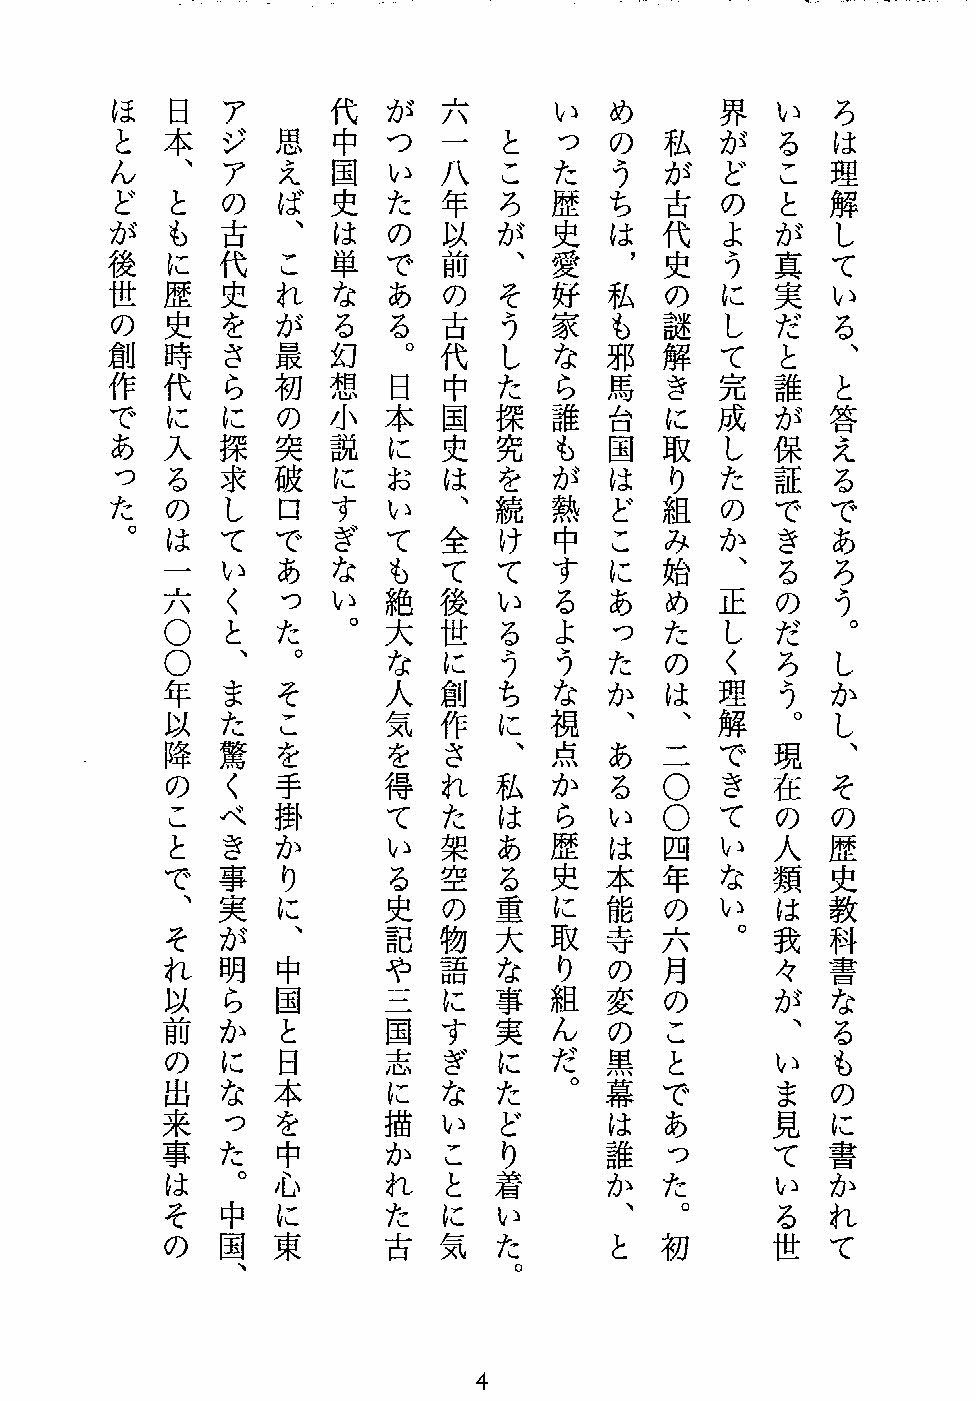 ろは理解している、と答えるであろう。しかし、その歴史教科書なるものに書かれて
いることが真実だと誰が保証できるのだろう。現在の人類は我々が、いま見ている世
界がどのようにして完成したのか、正しく理解できていない。
私が古代史の謎解きに取り組み始めたのは、二〇〇四年の六月のことであった。初
めのうちは，私も邪馬台国はどこにあったか、あるいは本能寺の変の黒幕は誰か、と
いった歴史愛好家なら誰もが熱中するような視点から歴史に取り組んだ。
ところが、そうした探究を続けているうちに、私はある重大な事実にたどり着いた。
六一八年以前の古代中国史は、全て後世に創作された架空の物語にすぎないことに気
がついたのである。日本においても絶大な人気を得ている史記や三国志に描かれた古
代中国史は単なる幻想小説にすぎない。
思えば、これが最初の突破口であった。そこを手掛かりに、中国と日本を中心に東
アジアの古代史をさらに探求していくと、また驚くべき事実が明らかになった。中国、
日本、ともに歴史時代に入るのは一六〇〇年以降のことで、それ以前の出来事はその
ほとんどが後世の創作であった。
4